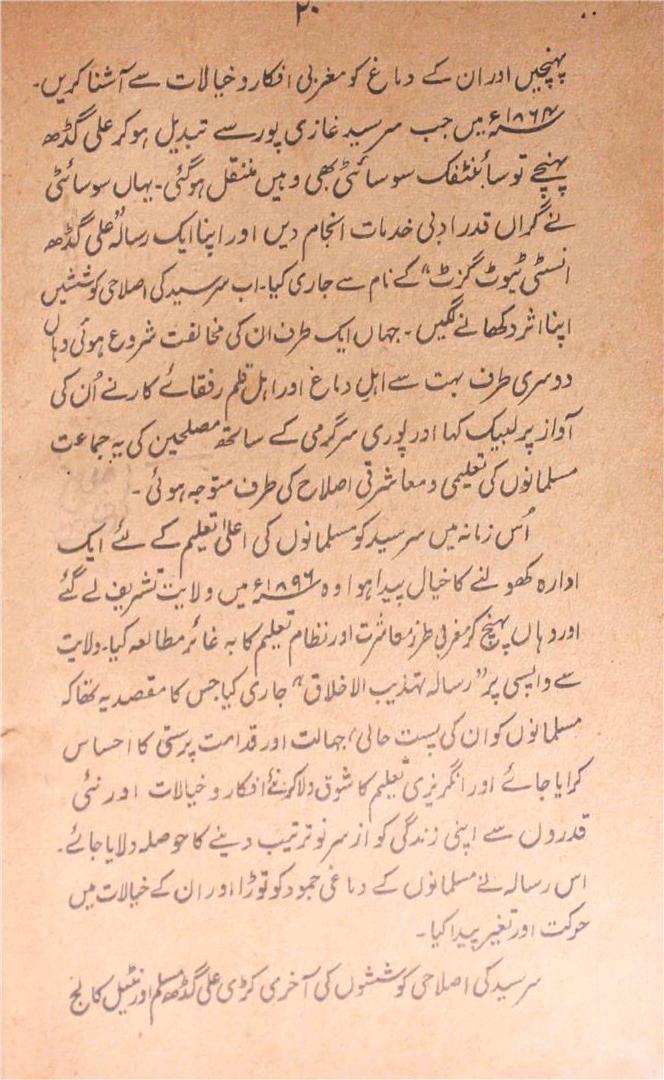 ۲۰
پہنچیں اور ان کے دماغ کو مغربی افکار و خیالات سے آشنا کریں۔
۱۸۶۴ء میں جب سرسید غازی پور سے تبدیل ہو کر علی گڈھ
پہنچے تو سائنٹفک سوسائٹی بھی وہیں منتقل ہو گئی۔ یہاں سوسائٹی
نے گراں قدر ادبی خدمات انجام دیں اور اپنا ایک رسالہ "علی گڈھ
انسٹی ٹیوٹ گزٹ" کے نام سے جاری کیا۔ اب سرسید کی اصلاحی کوششیں
اپنا اثر دکھانے لگیں۔ جہاں ایک طرف ان کی مخالفت شروع ہوئی وہاں
دوسری طرف بہت سے اہل دماغ اور اہل قلم رفقائے کار نے اُن کی
آواز پر لبیک کہا اور پوری سرگرمی کے ساتھ مصلحین کی یہ جماعت
مسلمانوں کی تعلیمی و معاشرتی اصلاح کی طرف متوجہ ہوئی۔
اُس زمانہ میں سرسید کو مسلمانوں کی اعلیٰ تعلیم کے لئے ایک
ادارہ کھولنے کا خیال پیدا ہوا وہ ۱۸۹۶ء میں ولایت تشریف لے گئے
اور وہاں پہنچ کر مغربی طرز معاشرت اور نظام تعلیم کا بہ غائر مطالعہ کیا۔ ولایت
سے واپسی پر "رسالہ تہذیب الاخلاق" جاری کیا جس کا مقصد یہ تھا کہ
مسلمانوں کو ان کی پست حالی، جہالت اور قدامت پرستی کا احساس
کرایا جائے اور انگریزی تعلیم کا شوق دلا کر نئے افکار و خیالات اور نئی
قدروں سے اپنی زندگی کو از سر نو ترتیب دینے کا حوصلہ دلایا جائے۔
اس رسالہ نے مسلمانوں کے دماغی جمود کو توڑا اور ان کے خیالات میں
حرکت اور تغیر پیدا کیا۔
سرسید کی اصلاحی کوششوں کی آخری کڑی علی گڈھ مسلم اورنٹیل کالج